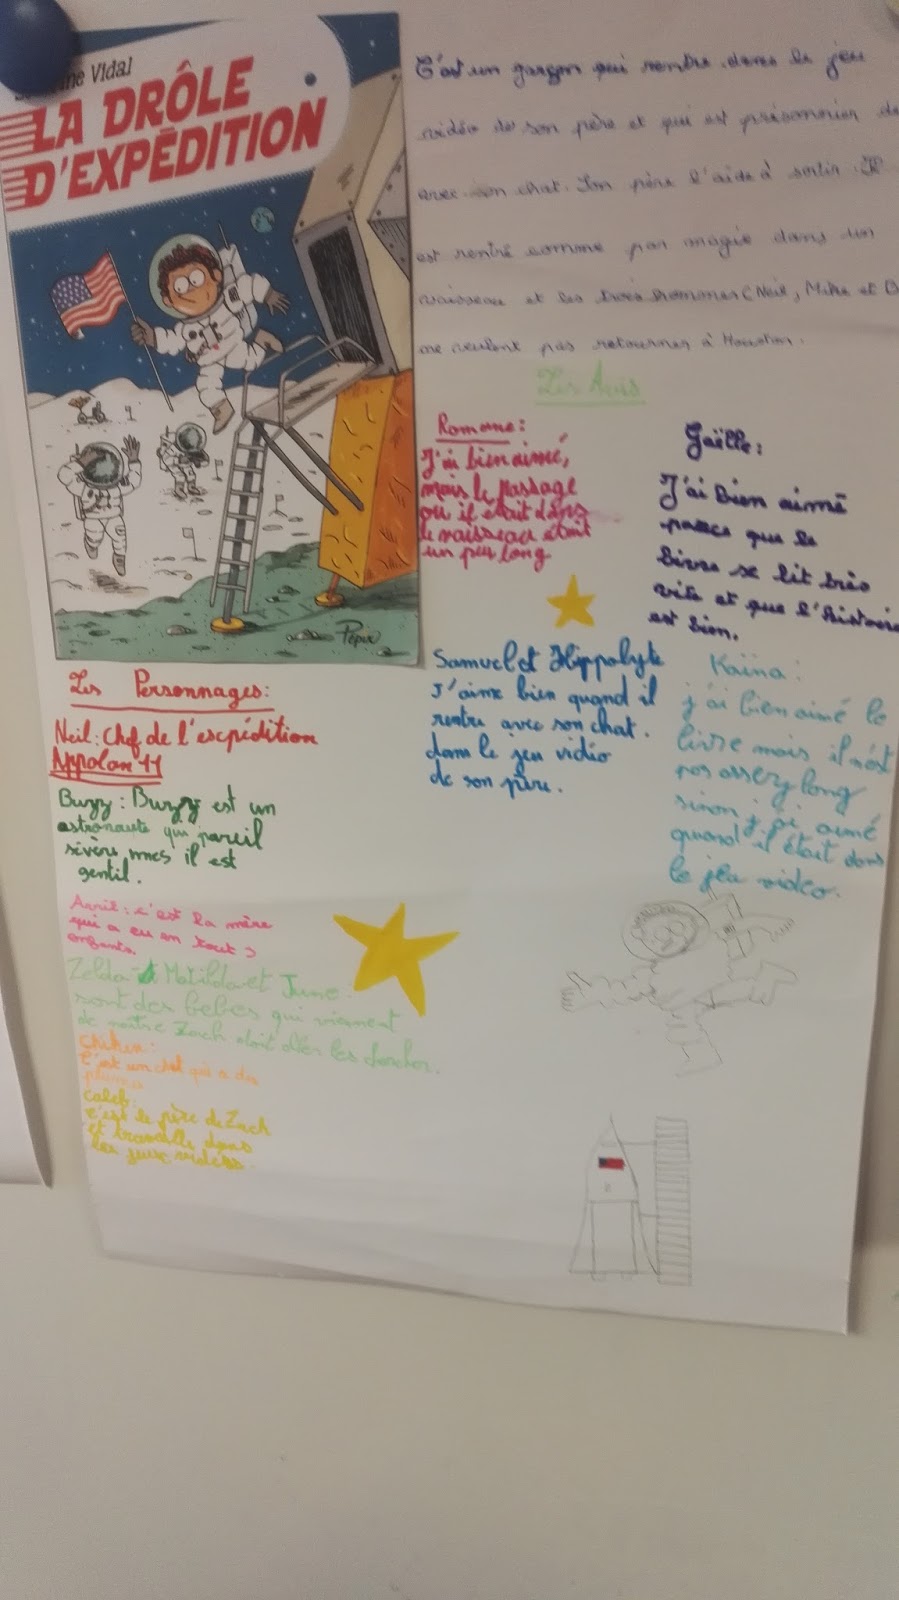 Vidal
LA DRÔLE
D'EXPÉDITION
Pépix
C'est un garçon qui rentre dans le jeu
vidéo de son père et qui est prisonnier
avec son chat. Son père l'aide à sortir.
est rentré comme par magie dans un
vaisseau et les trois hommes (Neil, Mike et
ne veulent pas retourner à Houston.
Les Avis
Romane:
J'ai bien aimé,
mais le passage
ou il était dans
le vaisseau était
un peu long
Gaëlle:
J'ai bien aimé
parce que le
livre se lit très
vite et que l'histoire
est bien.
Samuel et Hippolyte
J'aime bien quand il
rentre avec son chat.
dans le jeu vidéo
de son père.
Kaïna:
j'ai bien aimé le
livre mais il n'est
pas assez long
sinon j'ai aimé
quand il était dans
le jeu vidéo.
Les Personnages:
Neil: Chef de l'expédition
Appolon 11
Buzz: Buzz est un
astronaute qui pareil
sévère mes il est
gentil.
Avril: c'est la mère
qui a eu en tout
enfants.
Zelda et Matilda et June
sont des bebes qui viennent
de naitre Zach doit aller les chercher.
C'est un chat qui a des
Caleb:
c'est le père de Zach
et travaille dans
les jeux vidéos.